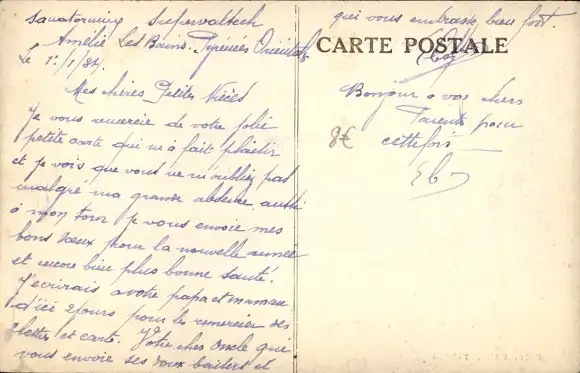 Sanatorium Supervaltech
Amélie Les Bains. Pyrénées Orientales
Le 1:/1/37.
Mes chères Petites Nièces
Je vous remercie de votre jolie
petite carte qui m'a fait plaisir
et je vois que vous ne m'oubliez pas
malgré ma grande absence. aussi
à mon tour je vous envoie mes
bons vœux pour la nouvelle année
et encore bien plus bonne santé.
J'écrirais a votre papa et maman
d'ici 2 jours pour les remercier des
2 lettres et carte. Votre cher Oncle qui
vous envoie ses doux baisers et
qui vous embrasse bien fort.
CARTE POSTALE
Bonjour a vos chers
Parents pour
cette fois
8€